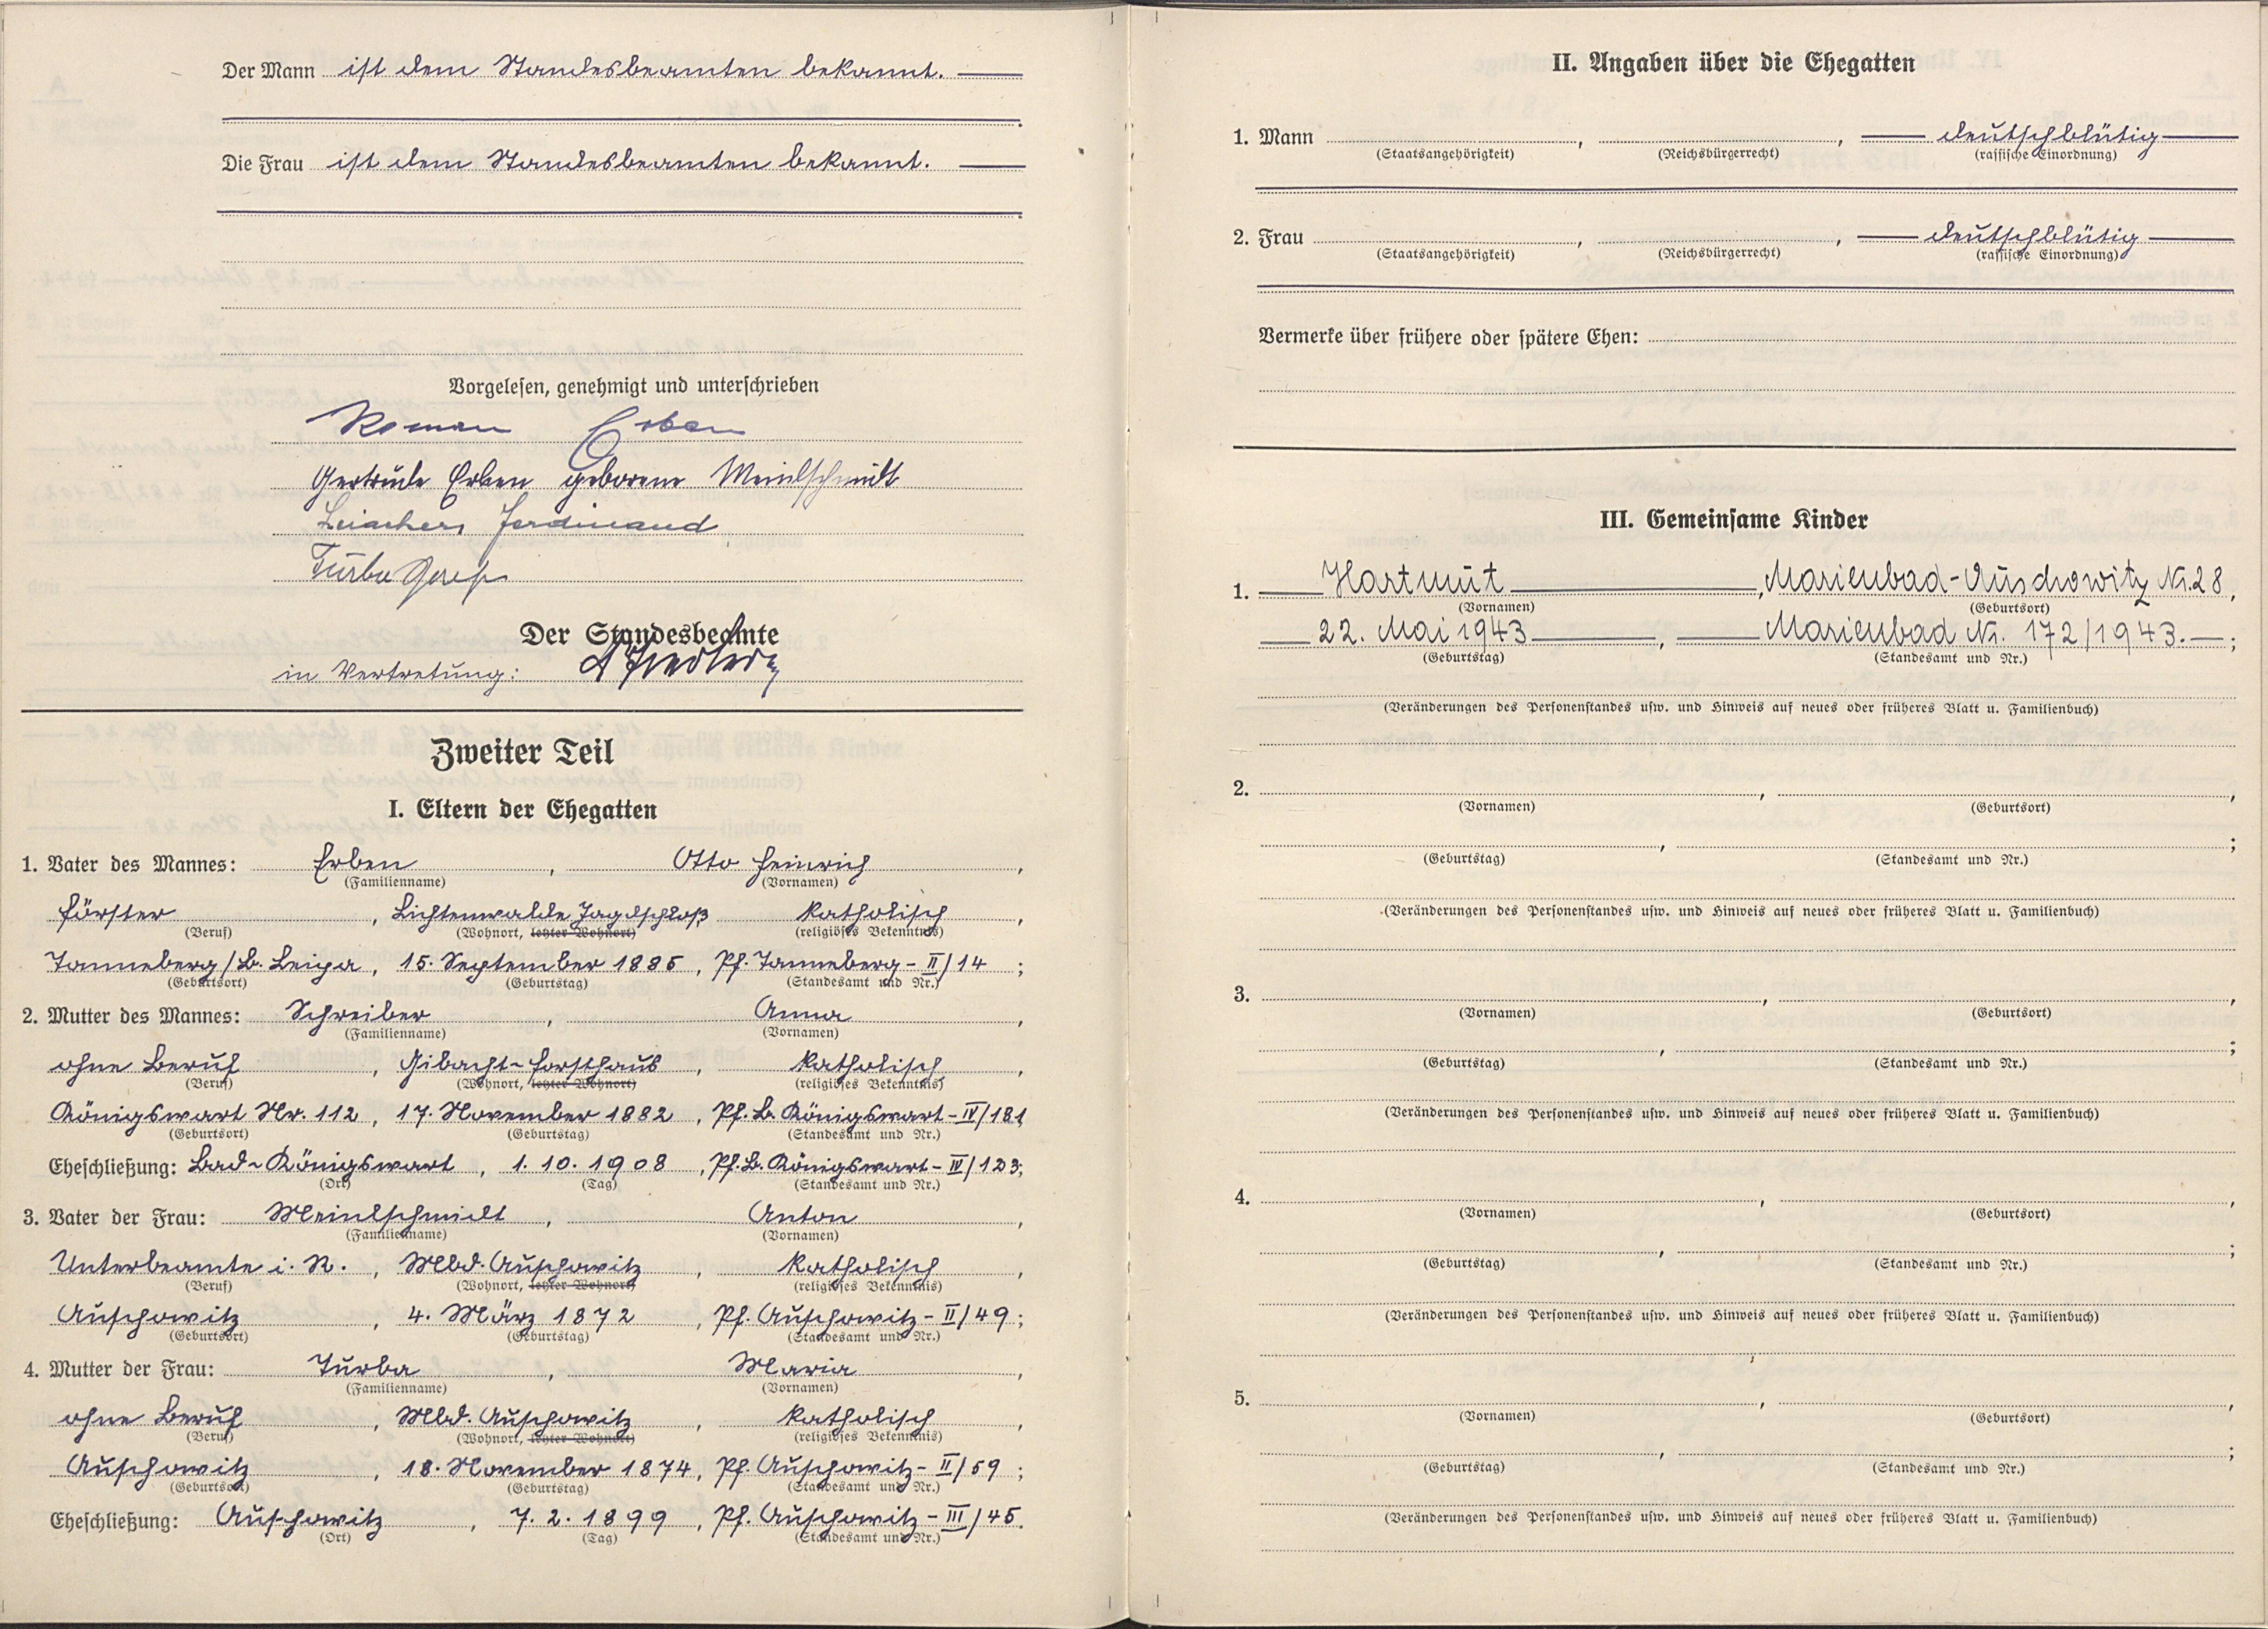 Der Mann ist dem Standesbeamten bekannt.
Die Frau ist dem Standesbeamten bekannt.
Vorgelesen, genehmigt und unterschrieben
Roman Erben
Gertrude Erben geborene Meindlschmidt
Ferdinand
Turba Josef
Der Standesbeamte
in Vertretung:
Zweiter Teil
I. Eltern der Ehegatten
1. Vater des Mannes: Erben, Otto Heinrich,
(Familienname) (Vornamen)
Förster, Lichtenwalde Jagdschloß, katholisch,
(Beruf) (Wohnort, letzter Wohnort) (religiöses Bekenntnis)
Tanneberg/B. Leipa, 15. September 1885, Pf. Tanneberg - II/14;
(Geburtsort) (Geburtstag) (Standesamt und Nr.)
2. Mutter des Mannes: Schreiber, Anna,
(Familienname) (Vornamen)
ohne Beruf, Gibacht-Forsthaus, katholisch,
(Beruf) (Wohnort, letzter Wohnort) (religiöses Bekenntnis)
Königswart Nr. 112, 17. November 1882, Pf. B. Königswart - IV/181
(Geburtsort) (Geburtstag) (Standesamt und Nr.)
Eheschließung: Bad-Königswart, 1. 10. 1908, Pf. B. Königswart - IV/123;
(Ort) (Tag) (Standesamt und Nr.)
3. Vater der Frau: Meindlschmidt, Anton,
(Familienname) (Vornamen)
Unterbeamte i. R., Mbd. Auschowitz, katholisch,
(Beruf) (Wohnort, letzter Wohnort) (religiöses Bekenntnis)
Auschowitz, 4. März 1872, Pf. Auschowitz - II/49;
(Geburtsort) (Geburtstag) (Standesamt und Nr.)
4. Mutter der Frau: Turba, Maria,
(Familienname) (Vornamen)
ohne Beruf, Mbd. Auschowitz, katholisch,
(Beruf) (Wohnort, letzter Wohnort) (religiöses Bekenntnis)
Auschowitz, 18. November 1874, Pf. Auschowitz - II/59;
(Geburtsort) (Geburtstag) (Standesamt und Nr.)
Eheschließung: Auschowitz, 7. 2. 1899, Pf. Auschowitz - III/45.
(Ort) (Tag) (Standesamt und Nr.)
II. Angaben über die Ehegatten
1. Mann , , deutschblütig
(Staatsangehörigkeit) (Reichsbürgerrecht) (rassische Einordnung)
2. Frau , , deutschblütig
(Staatsangehörigkeit) (Reichsbürgerrecht) (rassische Einordnung)
Vermerke über frühere oder spätere Ehen:
III. Gemeinsame Kinder
1. Hartmut, Marienbad-Auschowitz Nr. 28,
(Vornamen) (Geburtsort)
22. Mai 1943, Marienbad Nr. 172/1943.;
(Geburtstag) (Standesamt und Nr.)
(Veränderungen des Personenstandes usw. und Hinweis auf neues oder früheres Blatt u. Familienbuch)
2. , ,
(Vornamen) (Geburtsort)
, ;
(Geburtstag) (Standesamt und Nr.)
(Veränderungen des Personenstandes usw. und Hinweis auf neues oder früheres Blatt u. Familienbuch)
3. , ,
(Vornamen) (Geburtsort)
, ;
(Geburtstag) (Standesamt und Nr.)
(Veränderungen des Personenstandes usw. und Hinweis auf neues oder früheres Blatt u. Familienbuch)
4. , ,
(Vornamen) (Geburtsort)
, ;
(Geburtstag) (Standesamt und Nr.)
(Veränderungen des Personenstandes usw. und Hinweis auf neues oder früheres Blatt u. Familienbuch)
5. , ,
(Vornamen) (Geburtsort)
, ;
(Geburtstag) (Standesamt und Nr.)
(Veränderungen des Personenstandes usw. und Hinweis auf neues oder früheres Blatt u. Familienbuch)